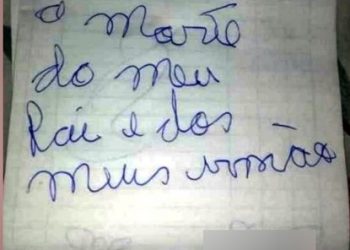 a Morte
do meu
Pai e dos
meus irmão